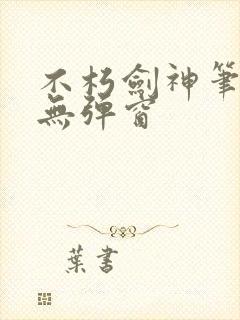 不朽劍神筆
無彈窗
葉書